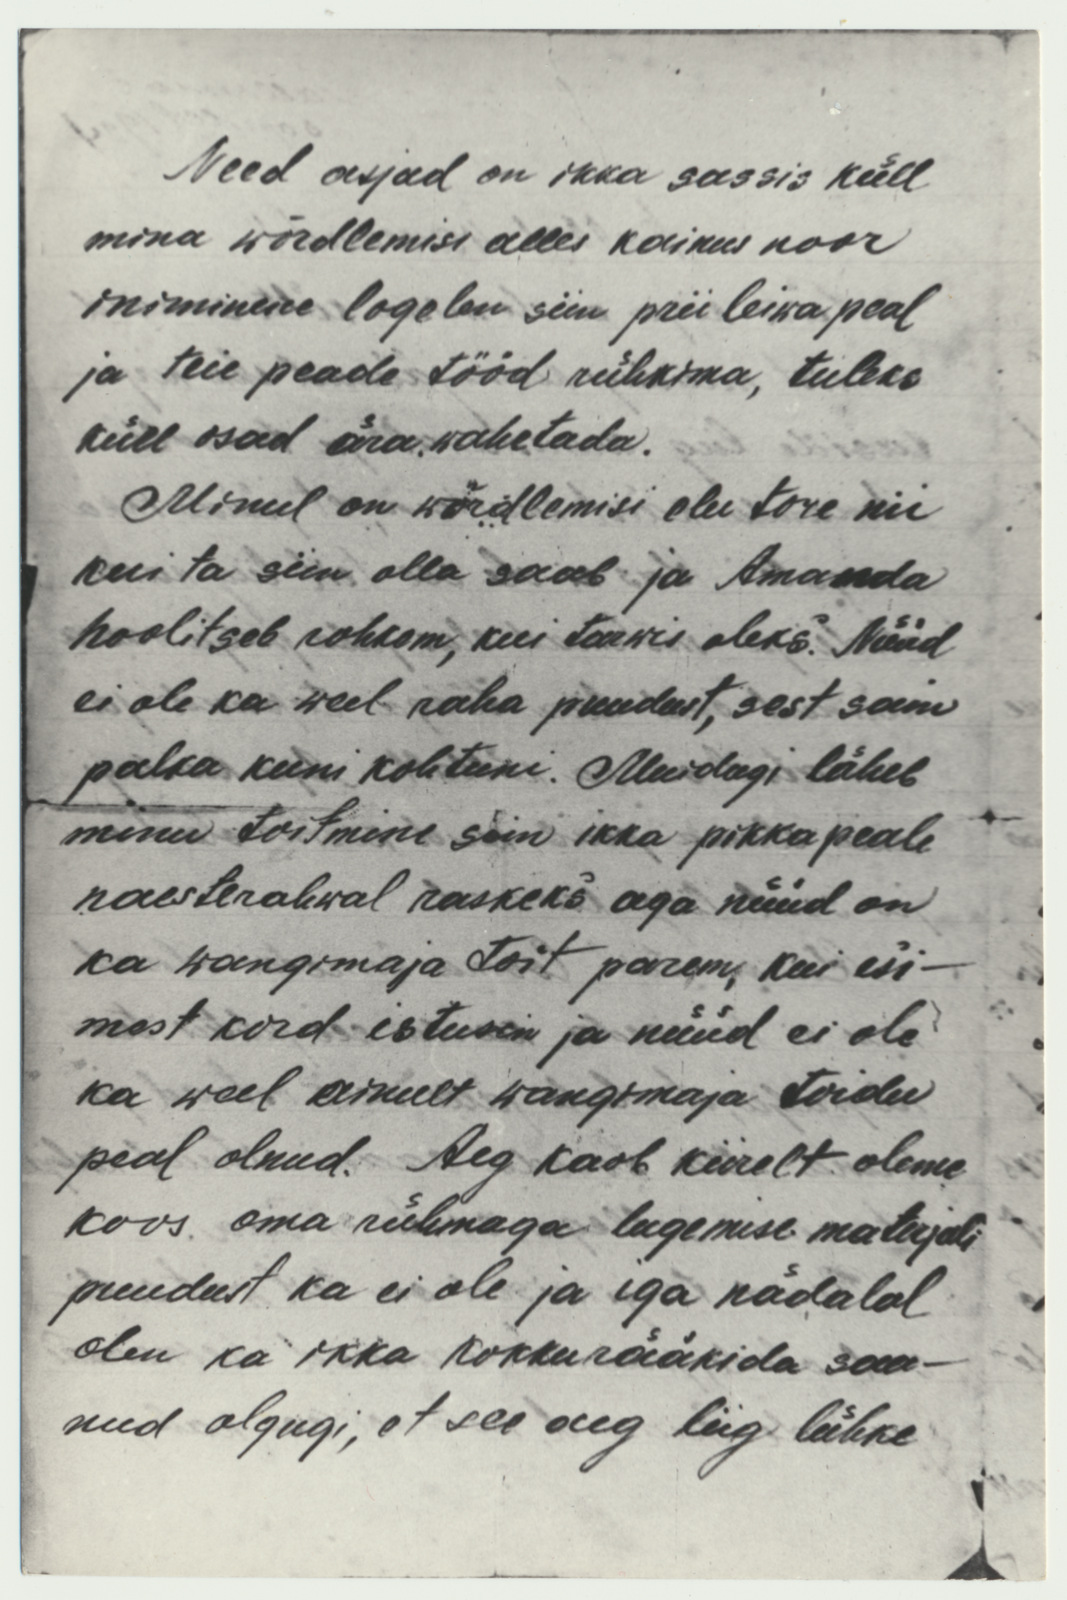 Need asjad on ikka sassis küll
mina wõrdlemisi alles kainus noor
iniminene logelen siin prii leiwa peal
ja teie peade tööd rühkima, tuleks
küll osad ära wahetada.
Minul on wõrdlemisi elu tore nii
kui ta siin olla saab ja Amanda
hoolitseb rohkem, kui tarwis oleks. Nüüd
ei ole ka weel raha puudust, sest sain
palka kuni kohtuni. Muidugi läheb
minu toitmine siin ikka pikkapeale
naesterahwal raskeks aga nüüd on
ka wangimaja toit parem, kui esi-
mest kord istusin ja nüüd ei ole
ka weel ainult wangimaja toidu
peal olnud. Aeg kaob kiirelt oleme
koos oma rühmaga lugemise materjali
puudust ka ei ole ja iga nädalal
olen ka ikka kokkurääkida saa-
nud olgugi, et see aeg liig lühke